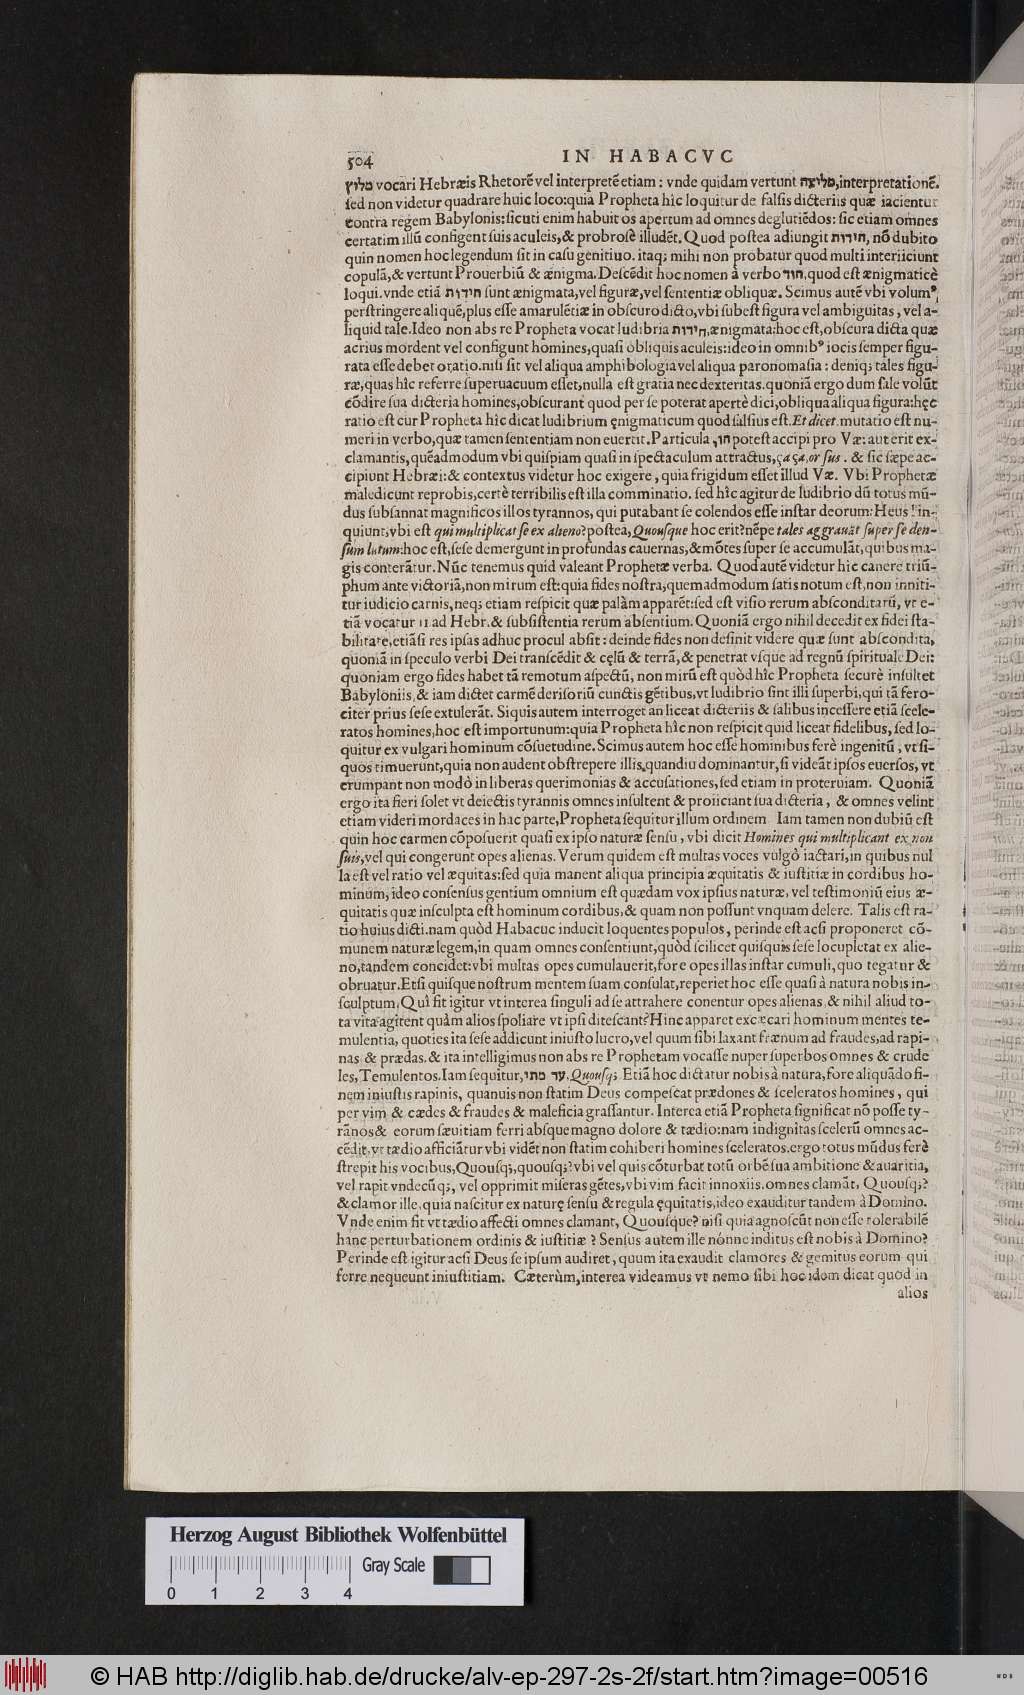 504 IN HABACVC
מלוץ vocari Hebræis Rhetorẽ vel interpretẽ etiam: vnde quidam vertunt מליצה, interpretationẽ.
ſed non videtur quadrare huic loco: quia Propheta hîc loquitur de falſis dicteriis quæ iacientur
contra regem Babylonis: ſicuti enim habuit os apertum ad omnes deglutiẽdos: ſic etiam omnes
certatim illũ configent ſuis aculeis, & probroſè illudẽt. Quod poſtea adiungit חידות, nõ dubito
quin nomen hoc legendum ſit in caſu genitiuo. itaq; mihi non probatur quod multi interiiciunt
copulã, & vertunt Prouerbiũ & ænigma. Deſcẽdit hoc nomen à verbo חוד, quod eſt ænigmaticè
loqui. vnde etiã חידות ſunt ænigmata, vel figuræ, vel ſententiæ obliquæ. Scimus autẽ vbi volumꝰ
perſtringere aliquẽ, plus eſſe amarulẽtiæ in obſcuro dicto, vbi ſubeſt figura vel ambiguitas, vel a-
liquid tale. Ideo non abs re Propheta vocat ludibria חידות, ænigmata: hoc eſt, obſcura dicta quæ
acrius mordent vel configunt homines, quaſi obliquis aculeis: ideo in omnibꝰ iocis ſemper figu-
rata eſſe debet oratio. niſi ſit vel aliqua amphibologia vel aliqua paronomaſia: deniq; tales figu-
ræ, quas hîc referre ſuperuacuum eſſet, nulla eſt gratia nec dexteritas. quoniã ergo dum ſale volũt
cõdire ſua dicteria homines, obſcurant quod per ſe poterat apertè dici, obliqua aliqua figura: hęc
ratio eſt cur Propheta hîc dicat ludibrium ęnigmaticum quod ſalſius eſt. Et dicet. mutatio eſt nu-
meri in verbo, quæ tamen ſententiam non euertit. Particula הוי, poteſt accipi pro Væ: aut erit ex-
clamantis, quẽadmodum vbi quiſpiam quaſi in ſpectaculum attractus, ça ça, or ſus. & ſic ſæpe ac-
cipiunt Hebræi: & contextus videtur hoc exigere, quia frigidum eſſet illud Væ. Vbi Prophetæ
maledicunt reprobis, certè terribilis eſt illa comminatio. ſed hîc agitur de ludibrio dũ totus mũ-
dus ſubſannat magnificos illos tyrannos, qui putabant ſe colendos eſſe inſtar deorum: Heus! in-
quiunt, vbi eſt qui multiplicat ſe ex alieno? poſtea, Quouſque hoc erit? nẽpe tales aggrauãt ſuper ſe den-
ſum lutum: hoc eſt, ſeſe demergunt in profundas cauernas, & mõtes ſuper ſe accumulãt, quibus ma-
gis conterãtur. Nũc tenemus quid valeant Prophetæ verba. Quod autẽ videtur hic canere triũ-
phum ante victoriã, non mirum eſt: quia fides noſtra, quemadmodum ſatis notum eſt, non inniti-
tur iudicio carnis, neq; etiam reſpicit quæ palàm apparẽt: ſed eſt viſio rerum abſconditarũ, vt e-
tiã vocatur 11 ad Hebr. & ſubſiſtentia rerum abſentium. Quoniã ergo nihil decedit ex fidei ſta-
bilitate, etiãſi res ipſas adhuc procul abſit: deinde fides non deſinit videre quæ ſunt abſcondita,
quoniã in ſpeculo verbi Dei tranſcẽdit & cęlũ & terrã, & penetrat vſque ad regnũ ſpirituale Dei:
quoniam ergo fides habet tã remotum aſpectũ, non mirũ eſt quòd hîc Propheta ſecurè inſultet
Babyloniis, & iam dictet carmẽ deriſoriũ cunctis gẽtibus, vt ludibrio ſint illi ſuperbi, qui tã fero-
citer prius ſeſe extulerãt. Siquis autem interroget an liceat dicteriis & ſalibus inceſſere etiã ſcele-
ratos homines, hoc eſt importunum: quia Propheta hîc non reſpicit quid liceat fidelibus, ſed lo-
quitur ex vulgari hominum cõſuetudine. Scimus autem hoc eſſe hominibus ferè ingenitũ, vt ſi-
quos timuerunt, quia non audent obſtrepere illis, quandiu dominantur, ſi videãt ipſos euerſos, vt
erumpant non modò in liberas querimonias & accuſationes, ſed etiam in proteruiam. Quoniã
ergo ita fieri ſolet vt deiectis tyrannis omnes inſultent & proiiciant ſua dicteria, & omnes velint
etiam videri mordaces in hac parte, Propheta ſequitur illum ordinem Iam tamen non dubiũ eſt
quin hoc carmen cõpoſuerit quaſi ex ipſo naturæ ſenſu, vbi dicit Homines qui multiplicant ex non
ſuis, vel qui congerunt opes alienas. Verum quidem eſt multas voces vulgò iactari, in quibus nul
la eſt vel ratio vel æquitas: ſed quia manent aliqua principia æquitatis & iuſtitiæ in cordibus ho-
minum, ideo conſenſus gentium omnium eſt quædam vox ipſius naturæ, vel teſtimoniũ eius æ-
quitatis quæ inſculpta eſt hominum cordibus, & quam non poſſunt vnquam delere. Talis eſt ra-
tio huius dicti. nam quòd Habacuc inducit loquentes populos, perinde eſt acſi proponeret cõ-
munem naturæ legem, in quam omnes conſentiunt, quòd ſcilicet quiſquis ſeſe locupletat ex alie-
no, tandem concidet: vbi multas opes cumulauerit, fore opes illas inſtar cumuli, quo tegatur &
obruatur. Etſi quiſque noſtrum mentem ſuam conſulat, reperiet hoc eſſe quaſi à natura nobis in-
ſculptum, Quî fit igitur vt interea ſinguli ad ſe attrahere conentur opes alienas, & nihil aliud to-
ta vita agitent quàm alios ſpoliare vt ipſi diteſcant? Hinc apparet excæcari hominum mentes te-
mulentia, quoties ita ſeſe addicunt iniuſto lucro, vel quum ſibi laxant frænum ad fraudes, ad rapi-
nas & prædas. & ita intelligimus non abs re Prophetam vocaſſe nuper ſuperbos omnes & crude
les, Temulentos. Iam ſequitur, עד מתי, Quouſq; Etiã hoc dictatur nobis à natura, fore aliquãdo fi-
nem iniuſtis rapinis, quanuis non ſtatim Deus compeſcat prædones & ſceleratos homines, qui
per vim & cædes & fraudes & maleficia graſſantur. Interea etiã Propheta ſignificat nõ poſſe ty-
rãnos & eorum ſæuitiam ferri abſque magno dolore & tædio: nam indignitas ſcelerũ omnes ac-
cẽdit, vt tædio afficiãtur vbi vidẽt non ſtatim cohiberi homines ſceleratos. ergo totus mũdus ferè
ſtrepit his vocibus, Quouſq;, quouſq;? vbi vel quis cõturbat totũ orbẽ ſua ambitione & auaritia,
vel rapit vndecũq;, vel opprimit miſeras gẽtes, vbi vim facit innoxiis. omnes clamãt, Quouſq;?
& clamor ille, quia naſcitur ex naturę ſenſu & regula ęquitatis, ideo exauditur tandem à Domino.
Vnde enim fit vt tædio affecti omnes clamant, Quouſque? niſi quia agnoſcũt non eſſe tolerabilẽ
hanc perturbationem ordinis & iuſtitiæ? Senſus autem ille nónne inditus eſt nobis à Domino?
Perinde eſt igitur acſi Deus ſe ipſum audiret, quum ita exaudit clamores & gemitus eorum qui
ferre nequeunt iniuſtitiam. Cæterùm, interea videamus vt nemo ſibi hoc idem dicat quòd in
alios
Herzog August Bibliothek Wolfenbüttel
Gray Scale
0 1 2 3 4
© HAB http://diglib.hab.de/drucke/alv-ep-297-2s-2f/start.htm?image=00516
WDB